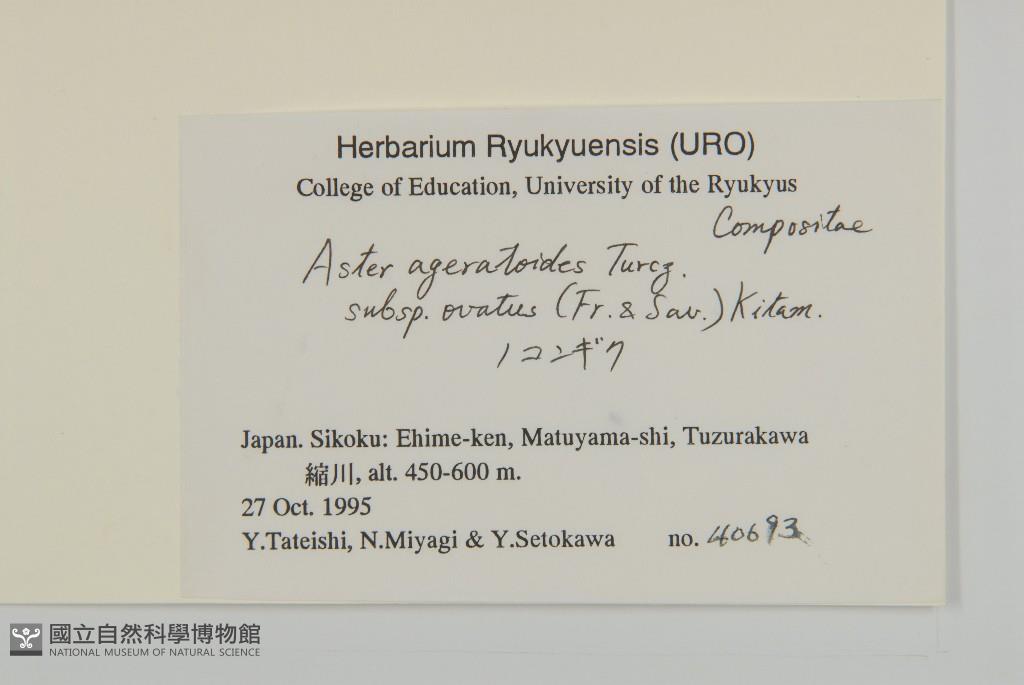 Herbarium Ryukyuensis (URO)
College of Education, University of the Ryukyus
Compositae
Aster ageratoides Turcz.
subsp. ovatus (Fr. & Sav.) Kitam.
ノコンギク
Japan. Sikoku: Ehime-ken, Matuyama-shi, Tuzurakawa
縮川, alt. 450-600 m.
27 Oct. 1995
Y.Tateishi, N.Miyagi & Y.Setokawa no. 40693
國立自然科學博物館
NATIONAL MUSEUM OF NATURAL SCIENCE